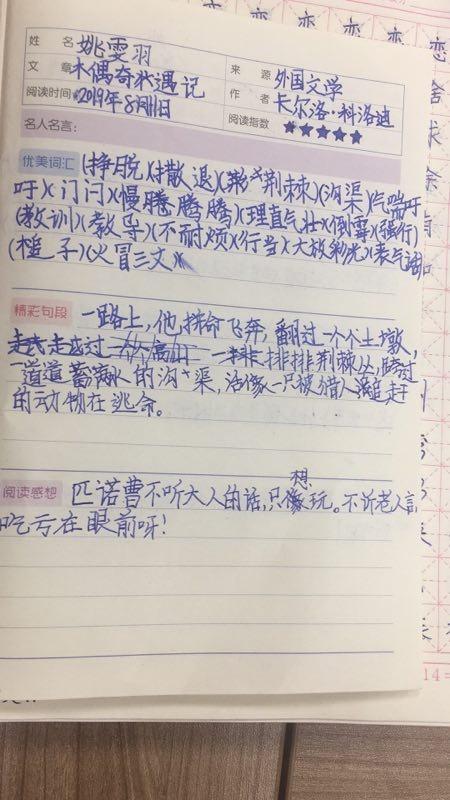 姓名 姚雯羽
文章 木偶奇遇记 来源 外国文学
阅读时间 2019年8月11日 作者 卡尔洛·科洛迪
阅读指数 ★★★★★
名人名言:
优美词汇 (挣脱)(撤退)(荆棘)(沟渠)(气喘吁
吁)(门闩)(慢腾腾腾)(理直气壮)(倒霉)(强行)
(教训)(教导)(不耐烦)(行当)(大放彩光)(表气
(槌子)(火冒三丈)
精彩句段 一路上,他拼命飞奔,翻过一个个土墩,
走过 一排排排荆棘丛,跨过
一道道蓄满水的沟渠,活像一只被猎人追赶
的动物在逃命。
阅读感想 匹诺曹不听大人的话,只想玩。不听老人言
吃亏在眼前呀!
恋
舍
求
余
14=